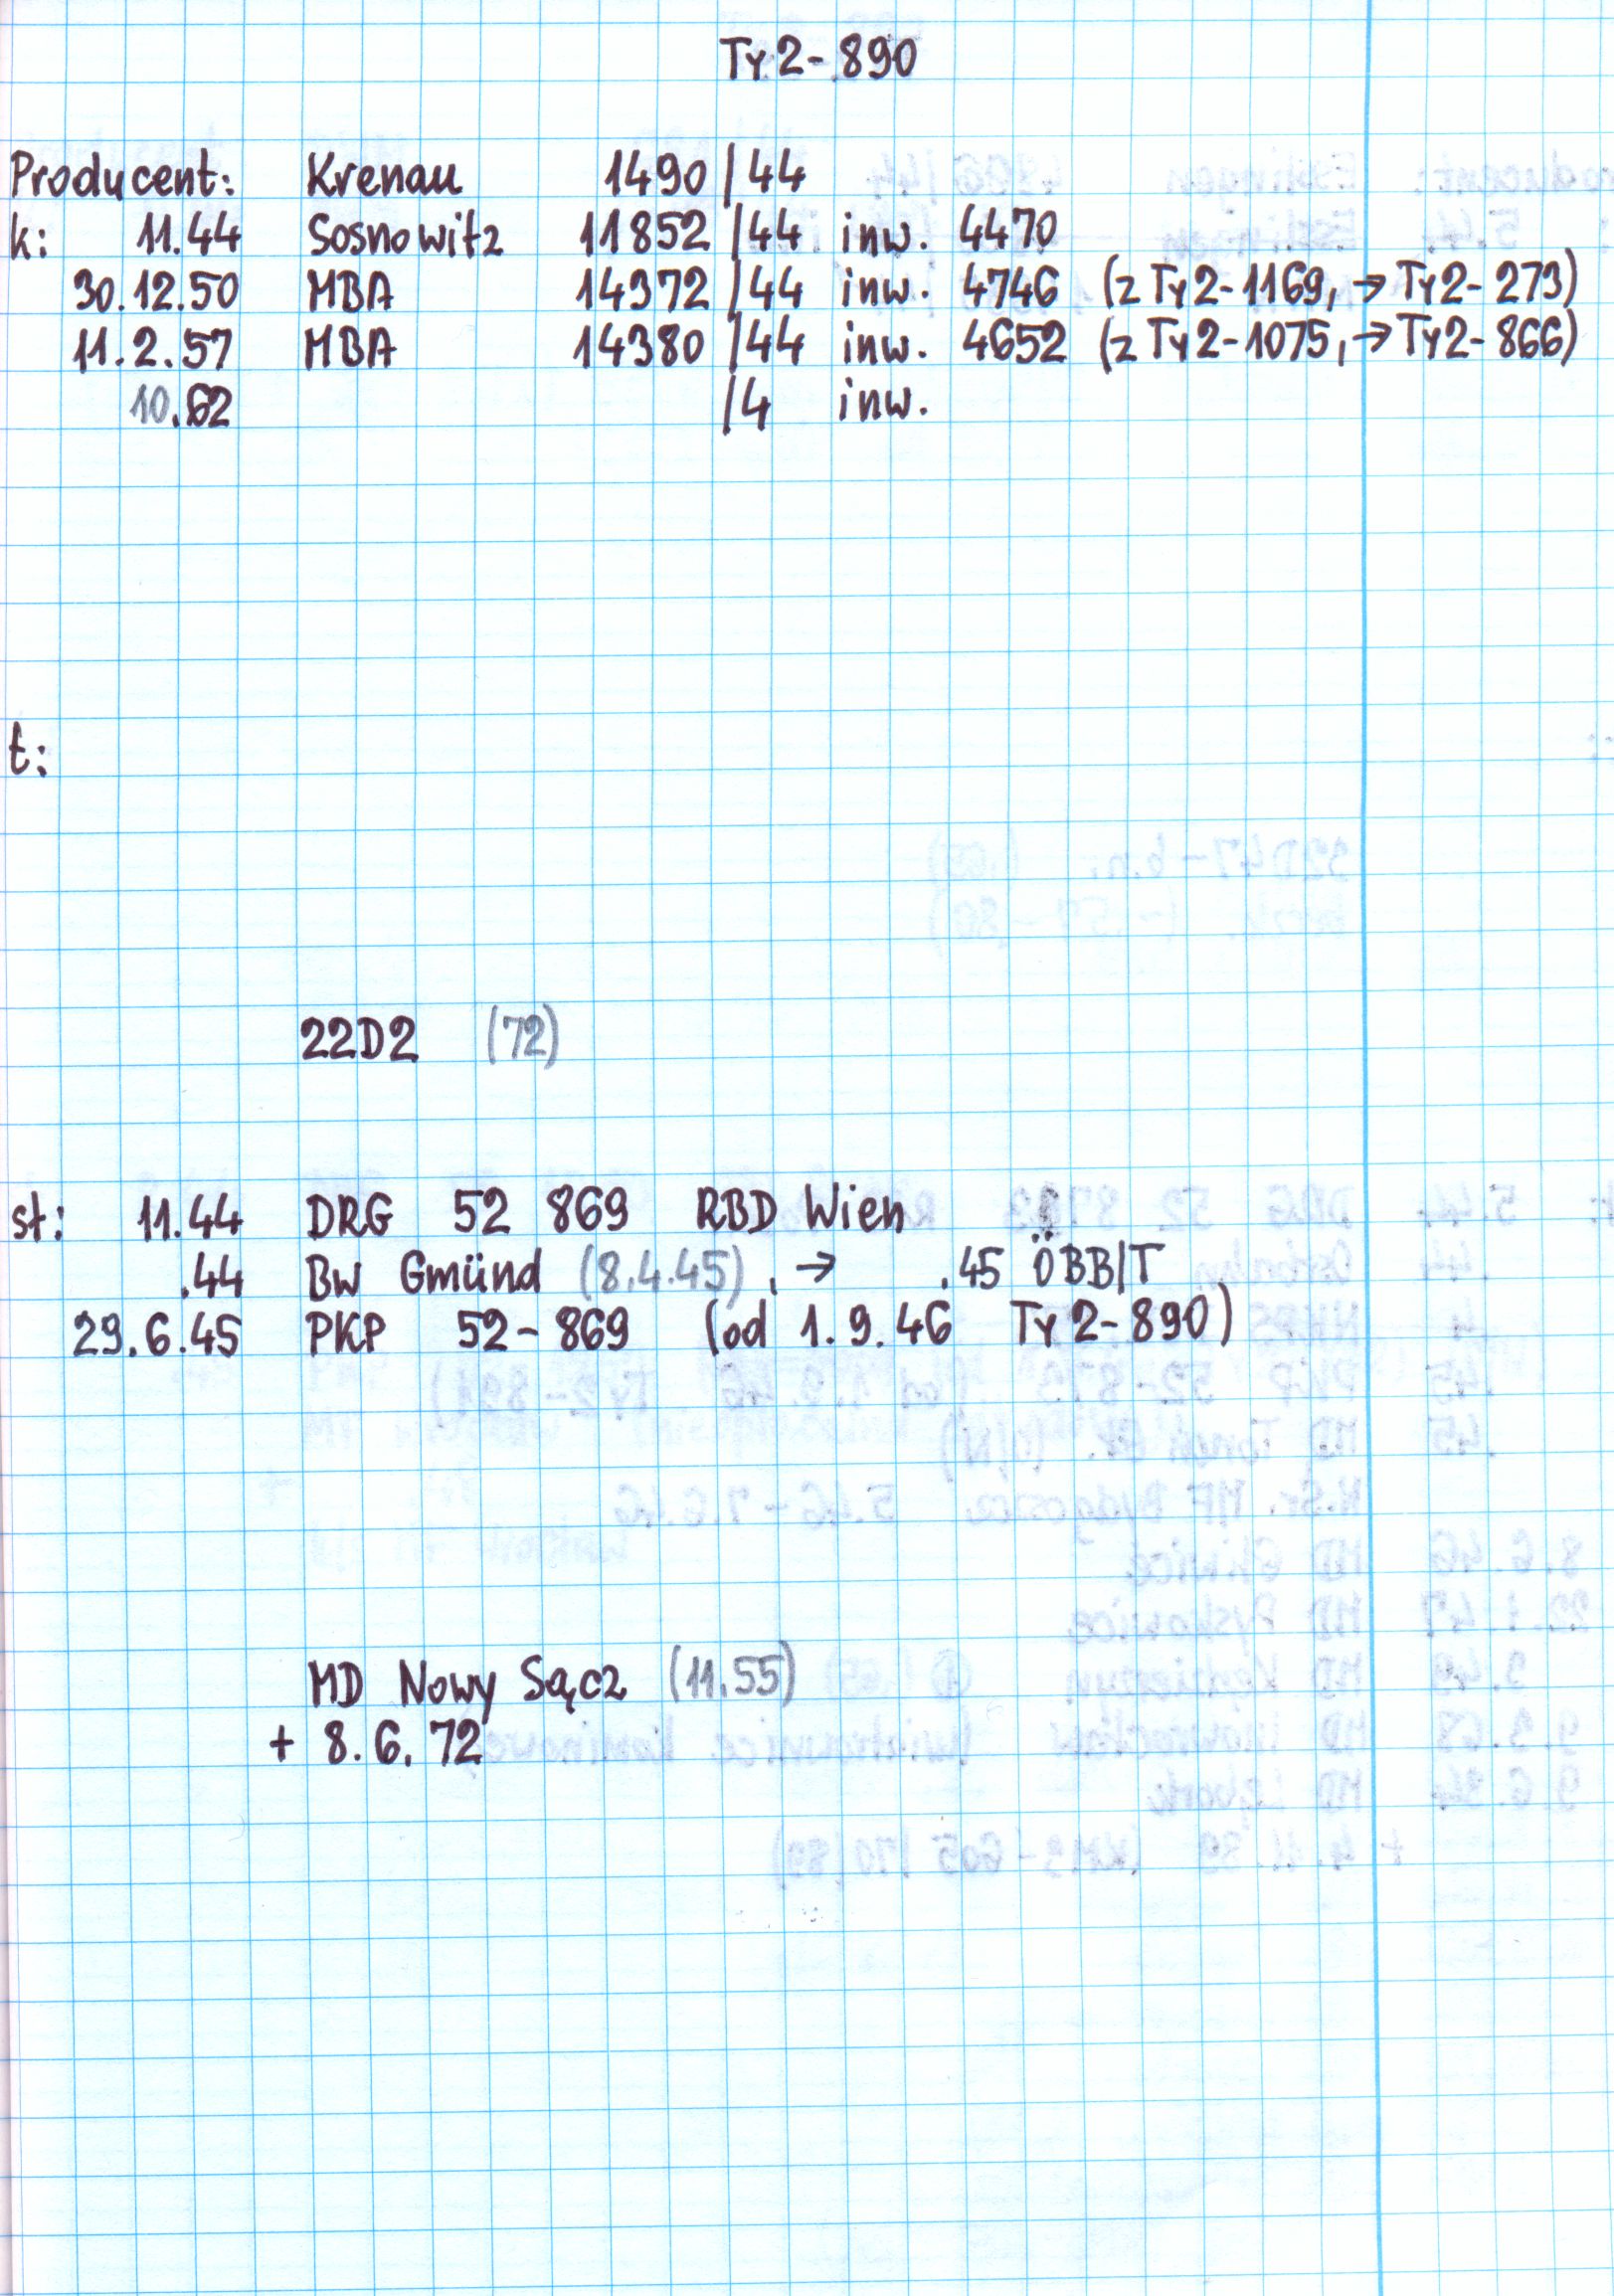 Ty2-890
Producent: Krenau 1490/44
k: 11.44 Sosnowitz 11852/44 inw. 4470
30.12.50 MBA 14372/44 inw. 4746 (z Ty2-1169, → Ty2-273)
11.2.57 MBA 14380/44 inw. 4652 (z Ty2-1075, → Ty2-866)
10.62 /4 inw.
t:
22D2 (72)
st: 11.44 DRG 52 869 RBD Wien
.44 Bw Gmünd (8.4.45), → .45 ÖBB/T
29.6.45 PKP 52-869 (od 1.9.46 Ty2-890)
MD Nowy Sącz (11.55)
+ 8.6.72